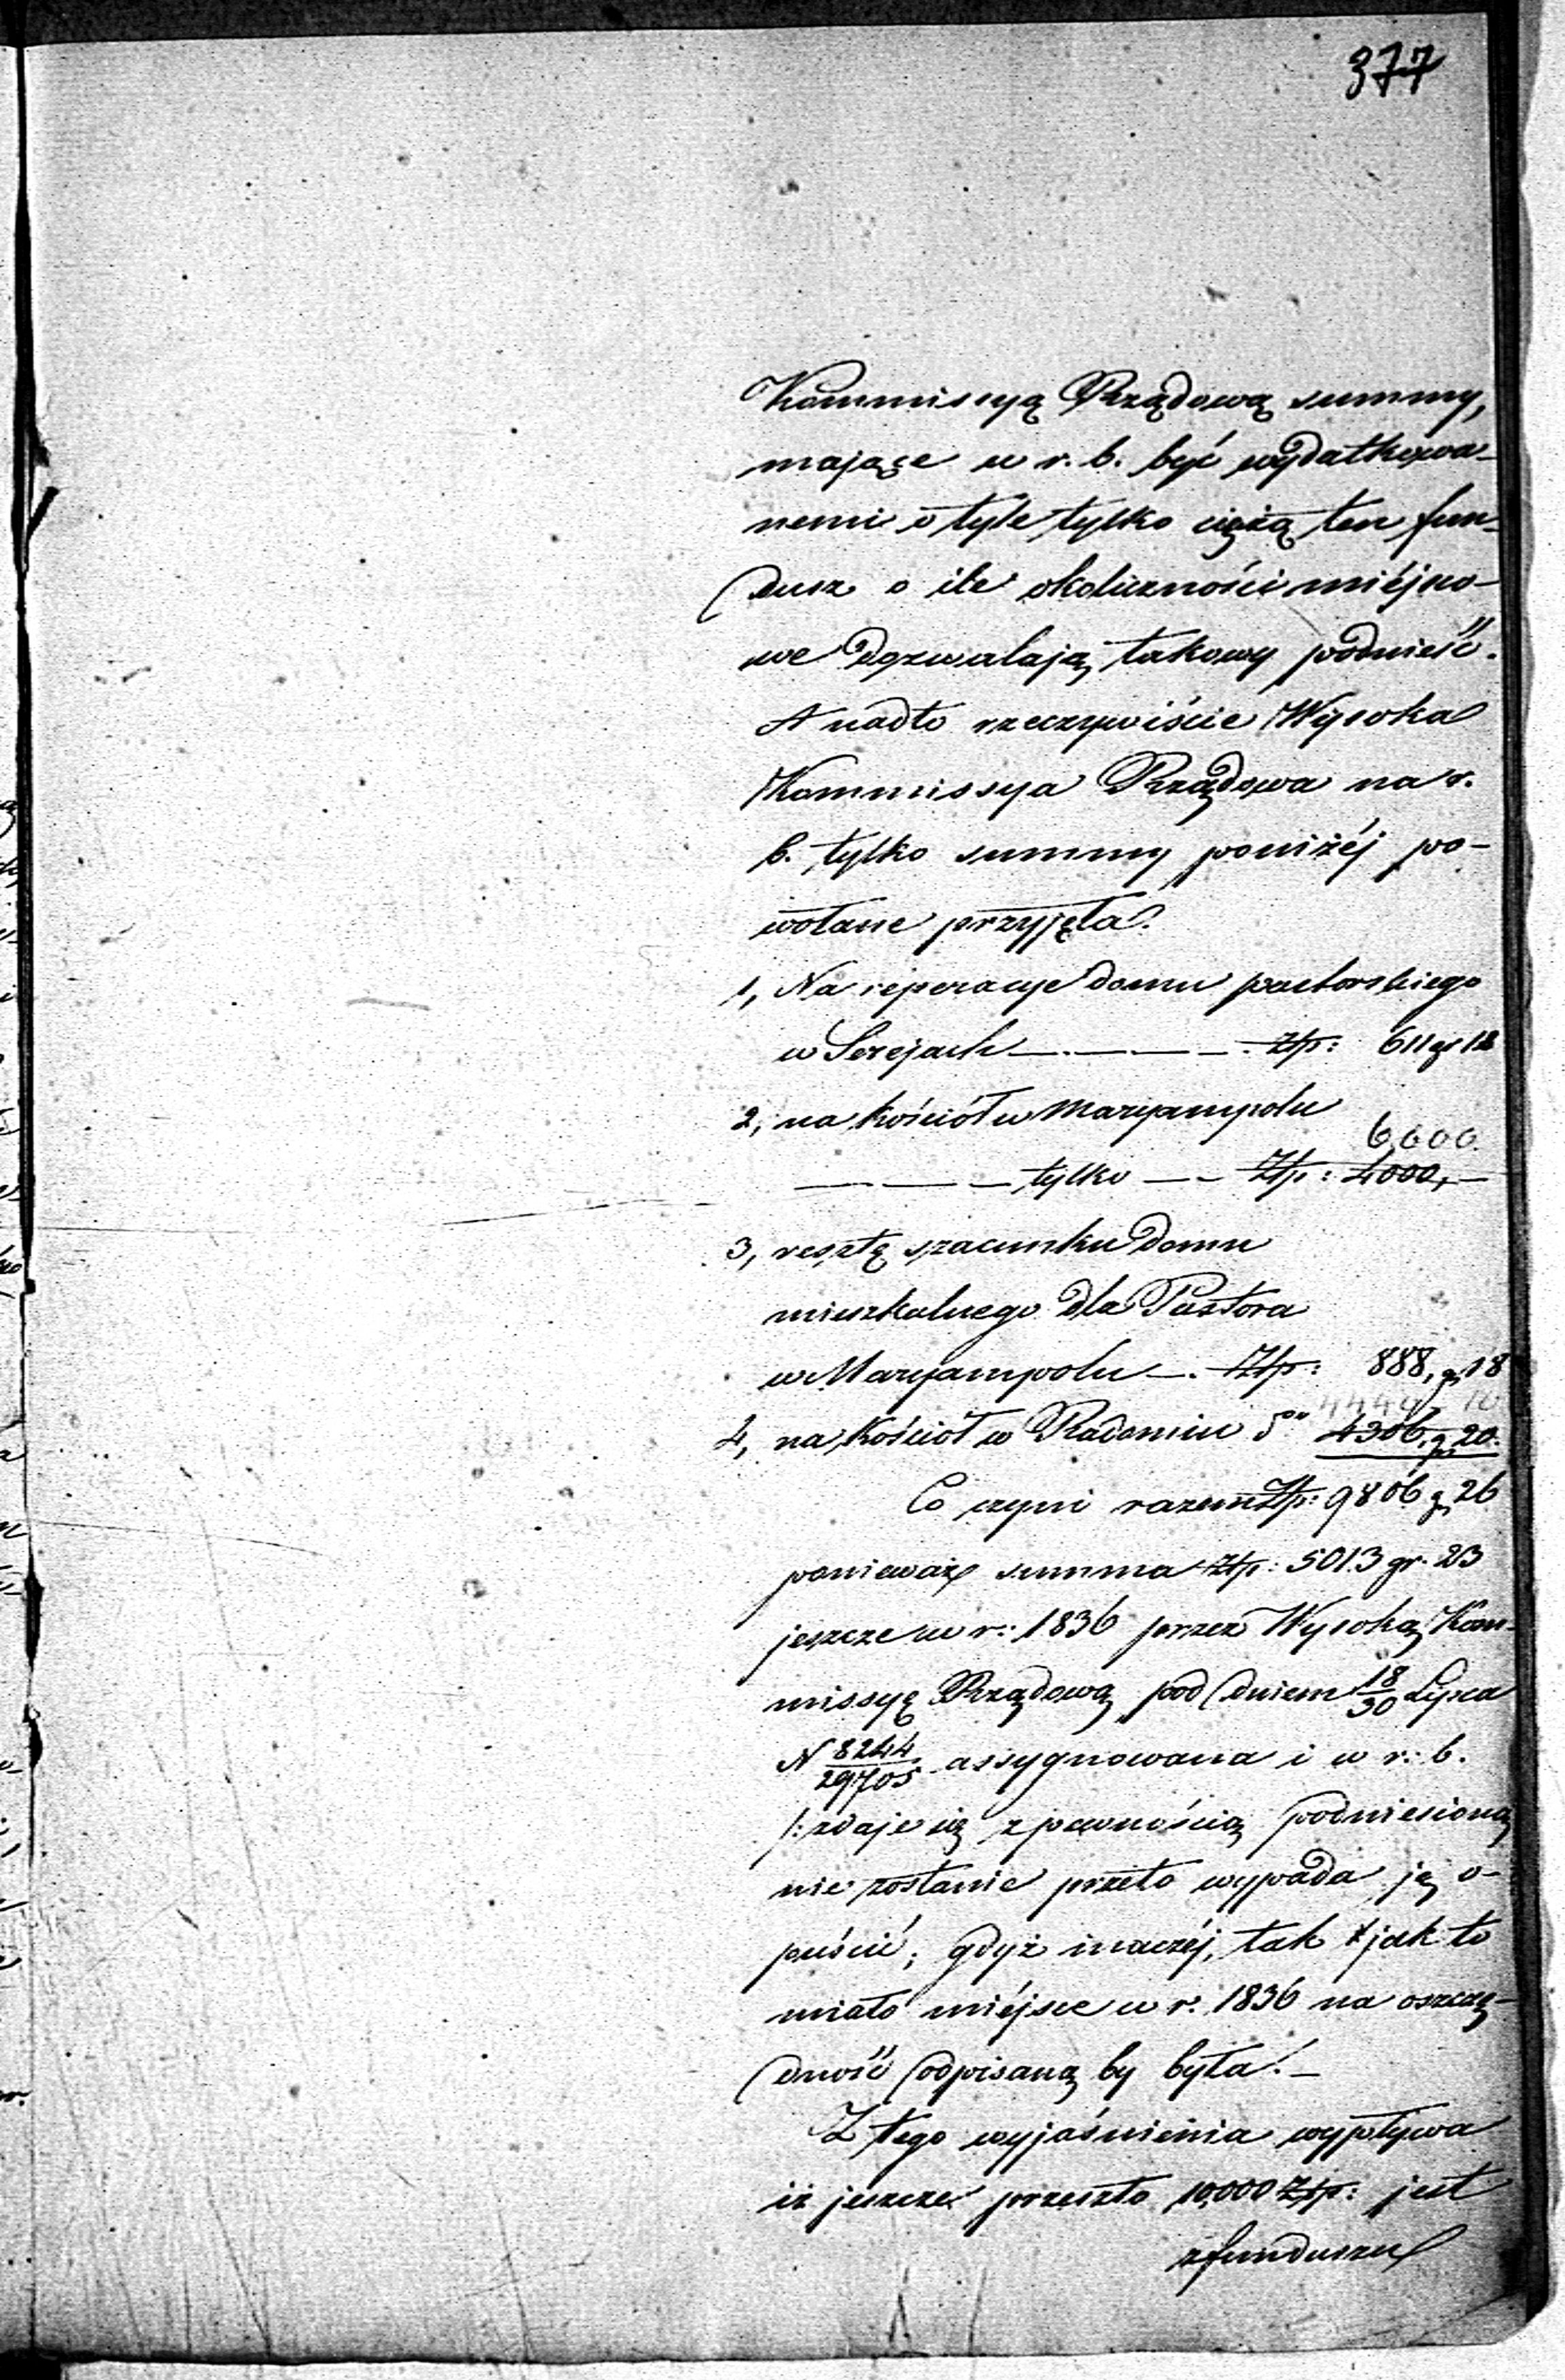 377
Kommissyą Rządową summy,
mające w r. b. być wydatkowa-
nemi o tyle tylko ciężą ten fun-
dusz o ile okoliczności miéjsco-
we dozwalają takowy podnieść.
A nadto rzeczywiście Wysoka
Kommissya Rządowa na r.
b. tylko summy poniżéj po-
wołane przyjęła.
1, Na reperacye domu pastorskiego
w Serejach —.———. Złp: 611 gr 18
2, na kościół w Maryampolu
6,000.
——— tylko —— Złp: 4000,—
3, resztę szacunku domu
mieszkalnego dla Pastora
w Maryampolu —. Złp: 888, gr 18
4444 10
4, na Kościół w Radomiu do 4306, gr 20.
Co czyni razem Złp: 9806 gr 26
ponieważ summa Złp: 5013 gr. 23
jeszcze w r: 1836 przez Wysoką Kom-
missyę Rządową pod dniem 18/30 Lipca
N 8244/29705 assygnowana i w r: b.
/: zdaje się z pewnością podniesioną
nie zostanie przeto wypada ją o-
puścić; gdyż inaczéj, tak jak to
miało miéjsce w r. 1836 na oszczę-
dność odpisaną by była. —
Z tego wyjaśnienia wypływa
iż jeszcze przeszło 10,000 Złp: jest
z funduszu